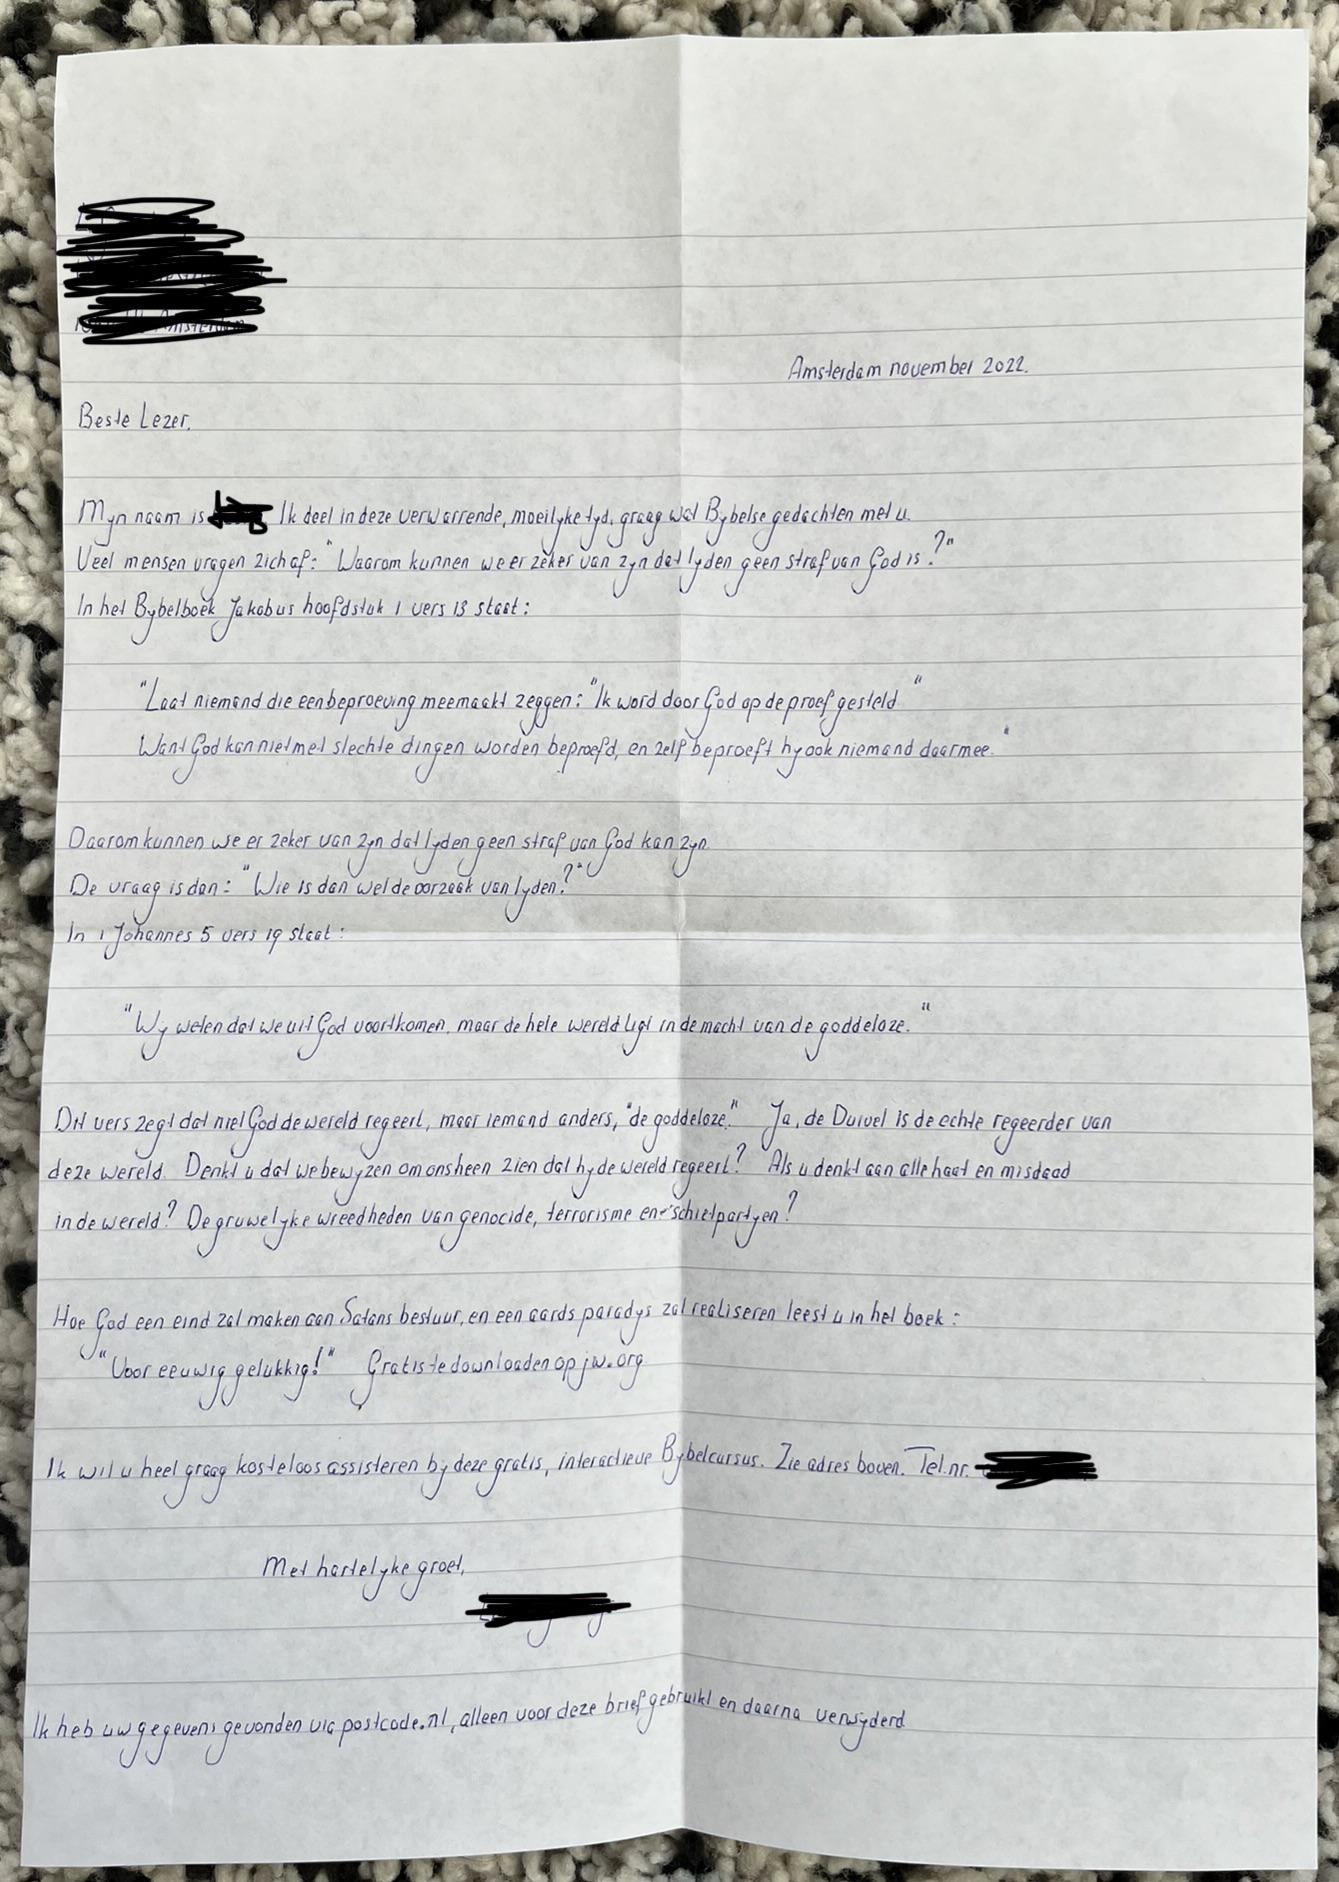 Amsterdam november 2022.
Beste Lezer,
Myn naam is Ik deel in deze verwarrende, moeilyke tyd, graag wat Bybelse gedachten met u.
Veel mensen vragen zich af: "Waarom kunnen we er zeker van zyn dat lyden geen straf van God is?"
In het Bybelboek Jakobus hoofdstuk 1 vers 13 staat:
"Laat niemand die een beproeving meemaakt zeggen: "Ik word door God op de proef gesteld"
Want God kan niet met slechte dingen worden beproefd, en zelf beproeft hy ook niemand daarmee."
Daarom kunnen we er zeker van zyn dat lyden geen straf van God kan zyn.
De vraag is dan: "Wie is dan wel de oorzaak van lyden?"
In 1 Johannes 5 vers 19 staat:
"Wy weten dat we uit God voortkomen, maar de hele wereld ligt in de macht van de goddeloze."
Dit vers zegt dat niet God de wereld regeert, maar iemand anders, "de goddeloze." Ja, de Duivel is de echte regeerder van
deze wereld. Denkt u dat we bewyzen om ons heen zien dat hy de wereld regeert? Als u denkt aan alle haat en misdaad
in de wereld? De gruwelyke wreedheden van genocide, terrorisme en schietpartyen?
Hoe God een eind zal maken aan Satans bestuur, en een aards paradys zal realiseren leest u in het boek:
"Voor eeuwig gelukkig!" Gratis te downloaden op jw.org
Ik wil u heel graag kosteloos assisteren by deze gratis, interactieve Bybelcursus. Zie adres boven. Tel.nr.
Met hartelyke groet,
Ik heb uw gegevens gevonden via postcode.nl, alleen voor deze brief gebruikt en daarna verwyderd